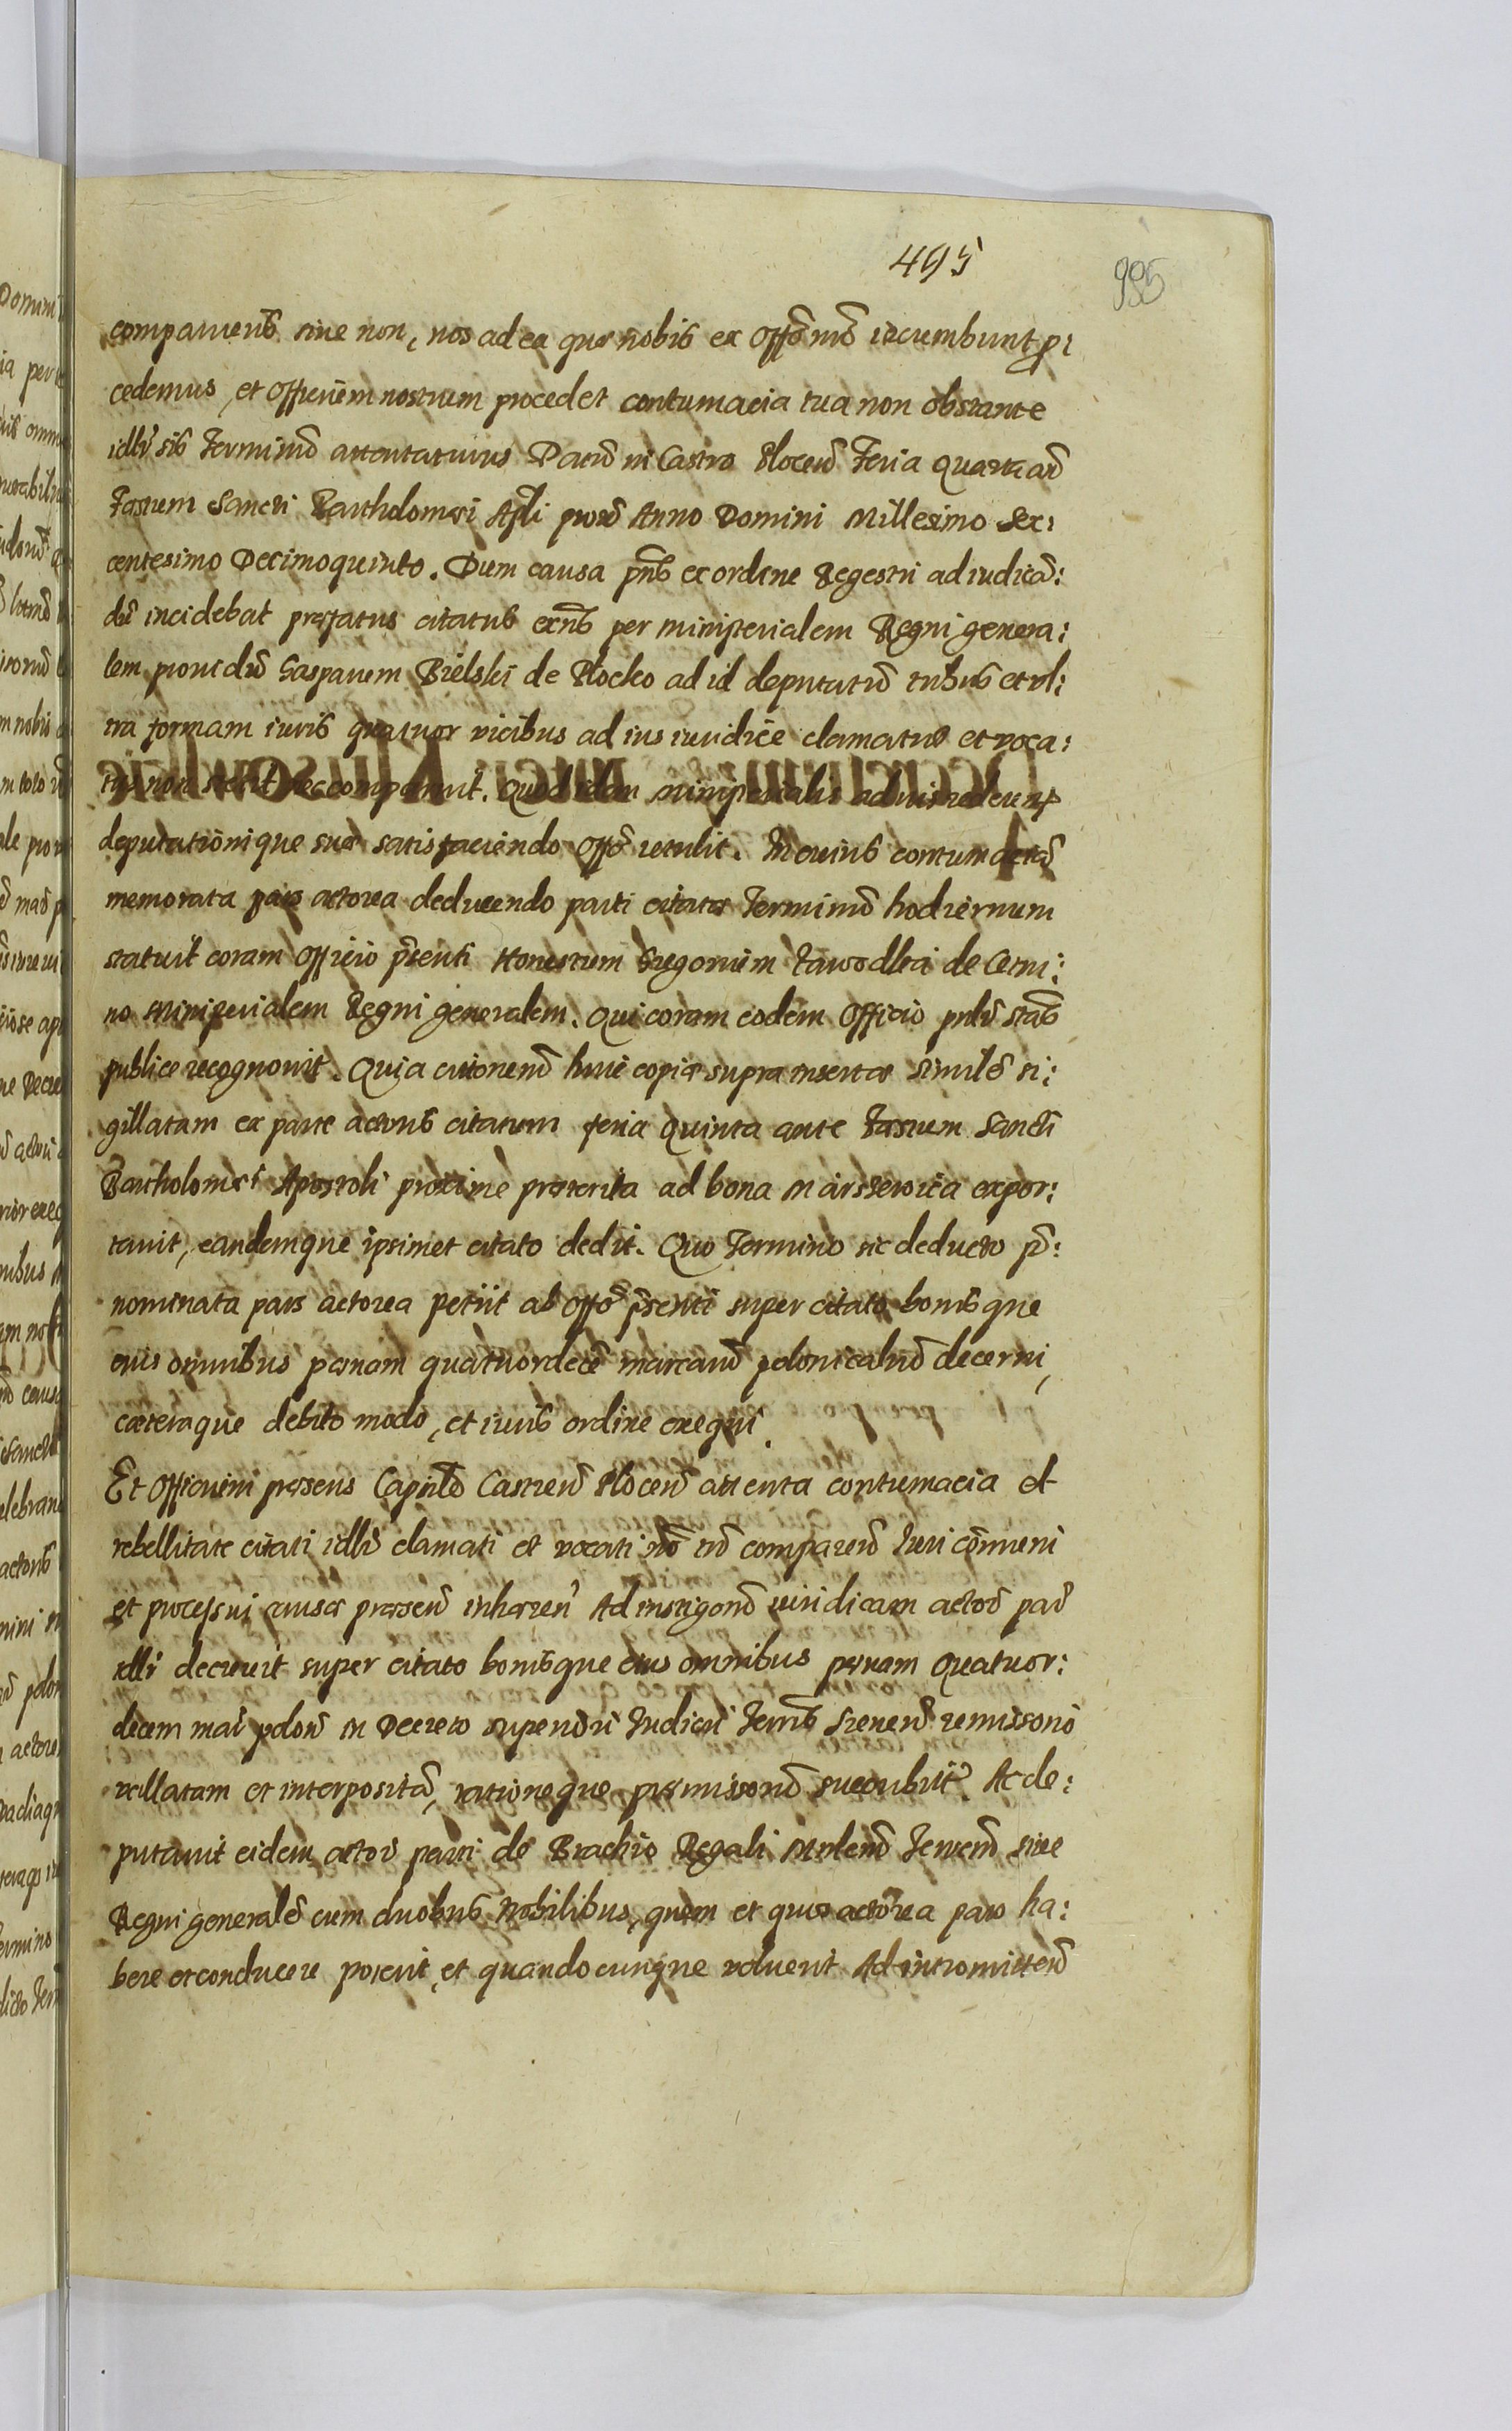 495
985
comparueris siue non, nos ad ea quæ nobis ex Offō nrō incumbunt
cedemus, et Officiūm nostrum procedet contumacia tua non obstante
idbr̄ sis Terminū attentaturus Datū in Castro Plocen̄ Feria Quarta an̄
Fastum Sancti Bartholomæi Apłi prox̄ Anno Domini Millesimo Sex:
centesimo Decimoquinto. Dum causa pn̄s ex ordine Regestri ad iudicā:
dū incidebat præfatus citatus exn̄s per ministerialem Regni genera:
lem prouidū Gasparem Bielski de Plocko ad id deputatū tribus et vl:
tra formam iuris quatuor vicibus ad ius iuridice clamatus et voca:
tus non stetit nec comparuit. Quod idem ministerialis
deputationique suæ satisfaciendo Offō retulit. In cuius contumaciā
memorata pars actorea deducendo parti citatæ Terminū hodiernum
statuit coram Officio p̄senti Honestum Gregorium de
no Ministerialem Regni generalem. Qui coram eodem Officio stās
publice recognouit. Quia citationem̄ huic copiæ supra insertæ Similē si:
gillatam ex parte actoris citatum feria Quinta ante Fastum Sancti
Bartholomæi Apostoli proxime præterita ad bona expor:
tauit, eandemque ipsimet citato dedit. Quo Termino sic deducto p̄:
nominata pars actorea petiit ab Offō p̄senti super citato bonisque
eius omnibus pænam quatuordecē marcarū polonicaliū decerni,
cæteraque debito modo, et iuris ordine exequi.
Et Officiūm præsens Capitłē Castren̄ Plocen̄ attenta contumacia et
rebellitate citati idbr̄ clamati et vocati nō comparen̄ Iuri cōmuni
et processui causæ præsen̄ inhæren̄ Ad instigaōn̄ iuridicam actor̄ par̄
idbr̄ decreuit super citato bonisque eius omnibus pænam Quatuor:
decem mar̄ polon̄ in Decreto Iudicii Terris remissonis
vallatam et interpositā, rationeque præmissorū succubuit. Ac de:
putauit eidem actor̄ parti de Brachio Regali siue
Regni generalē cum duobus Nobilibus, quem et quos actorea pars ha:
bere et conducere poterit, et quandocunque voluerit Ad intromitten̄